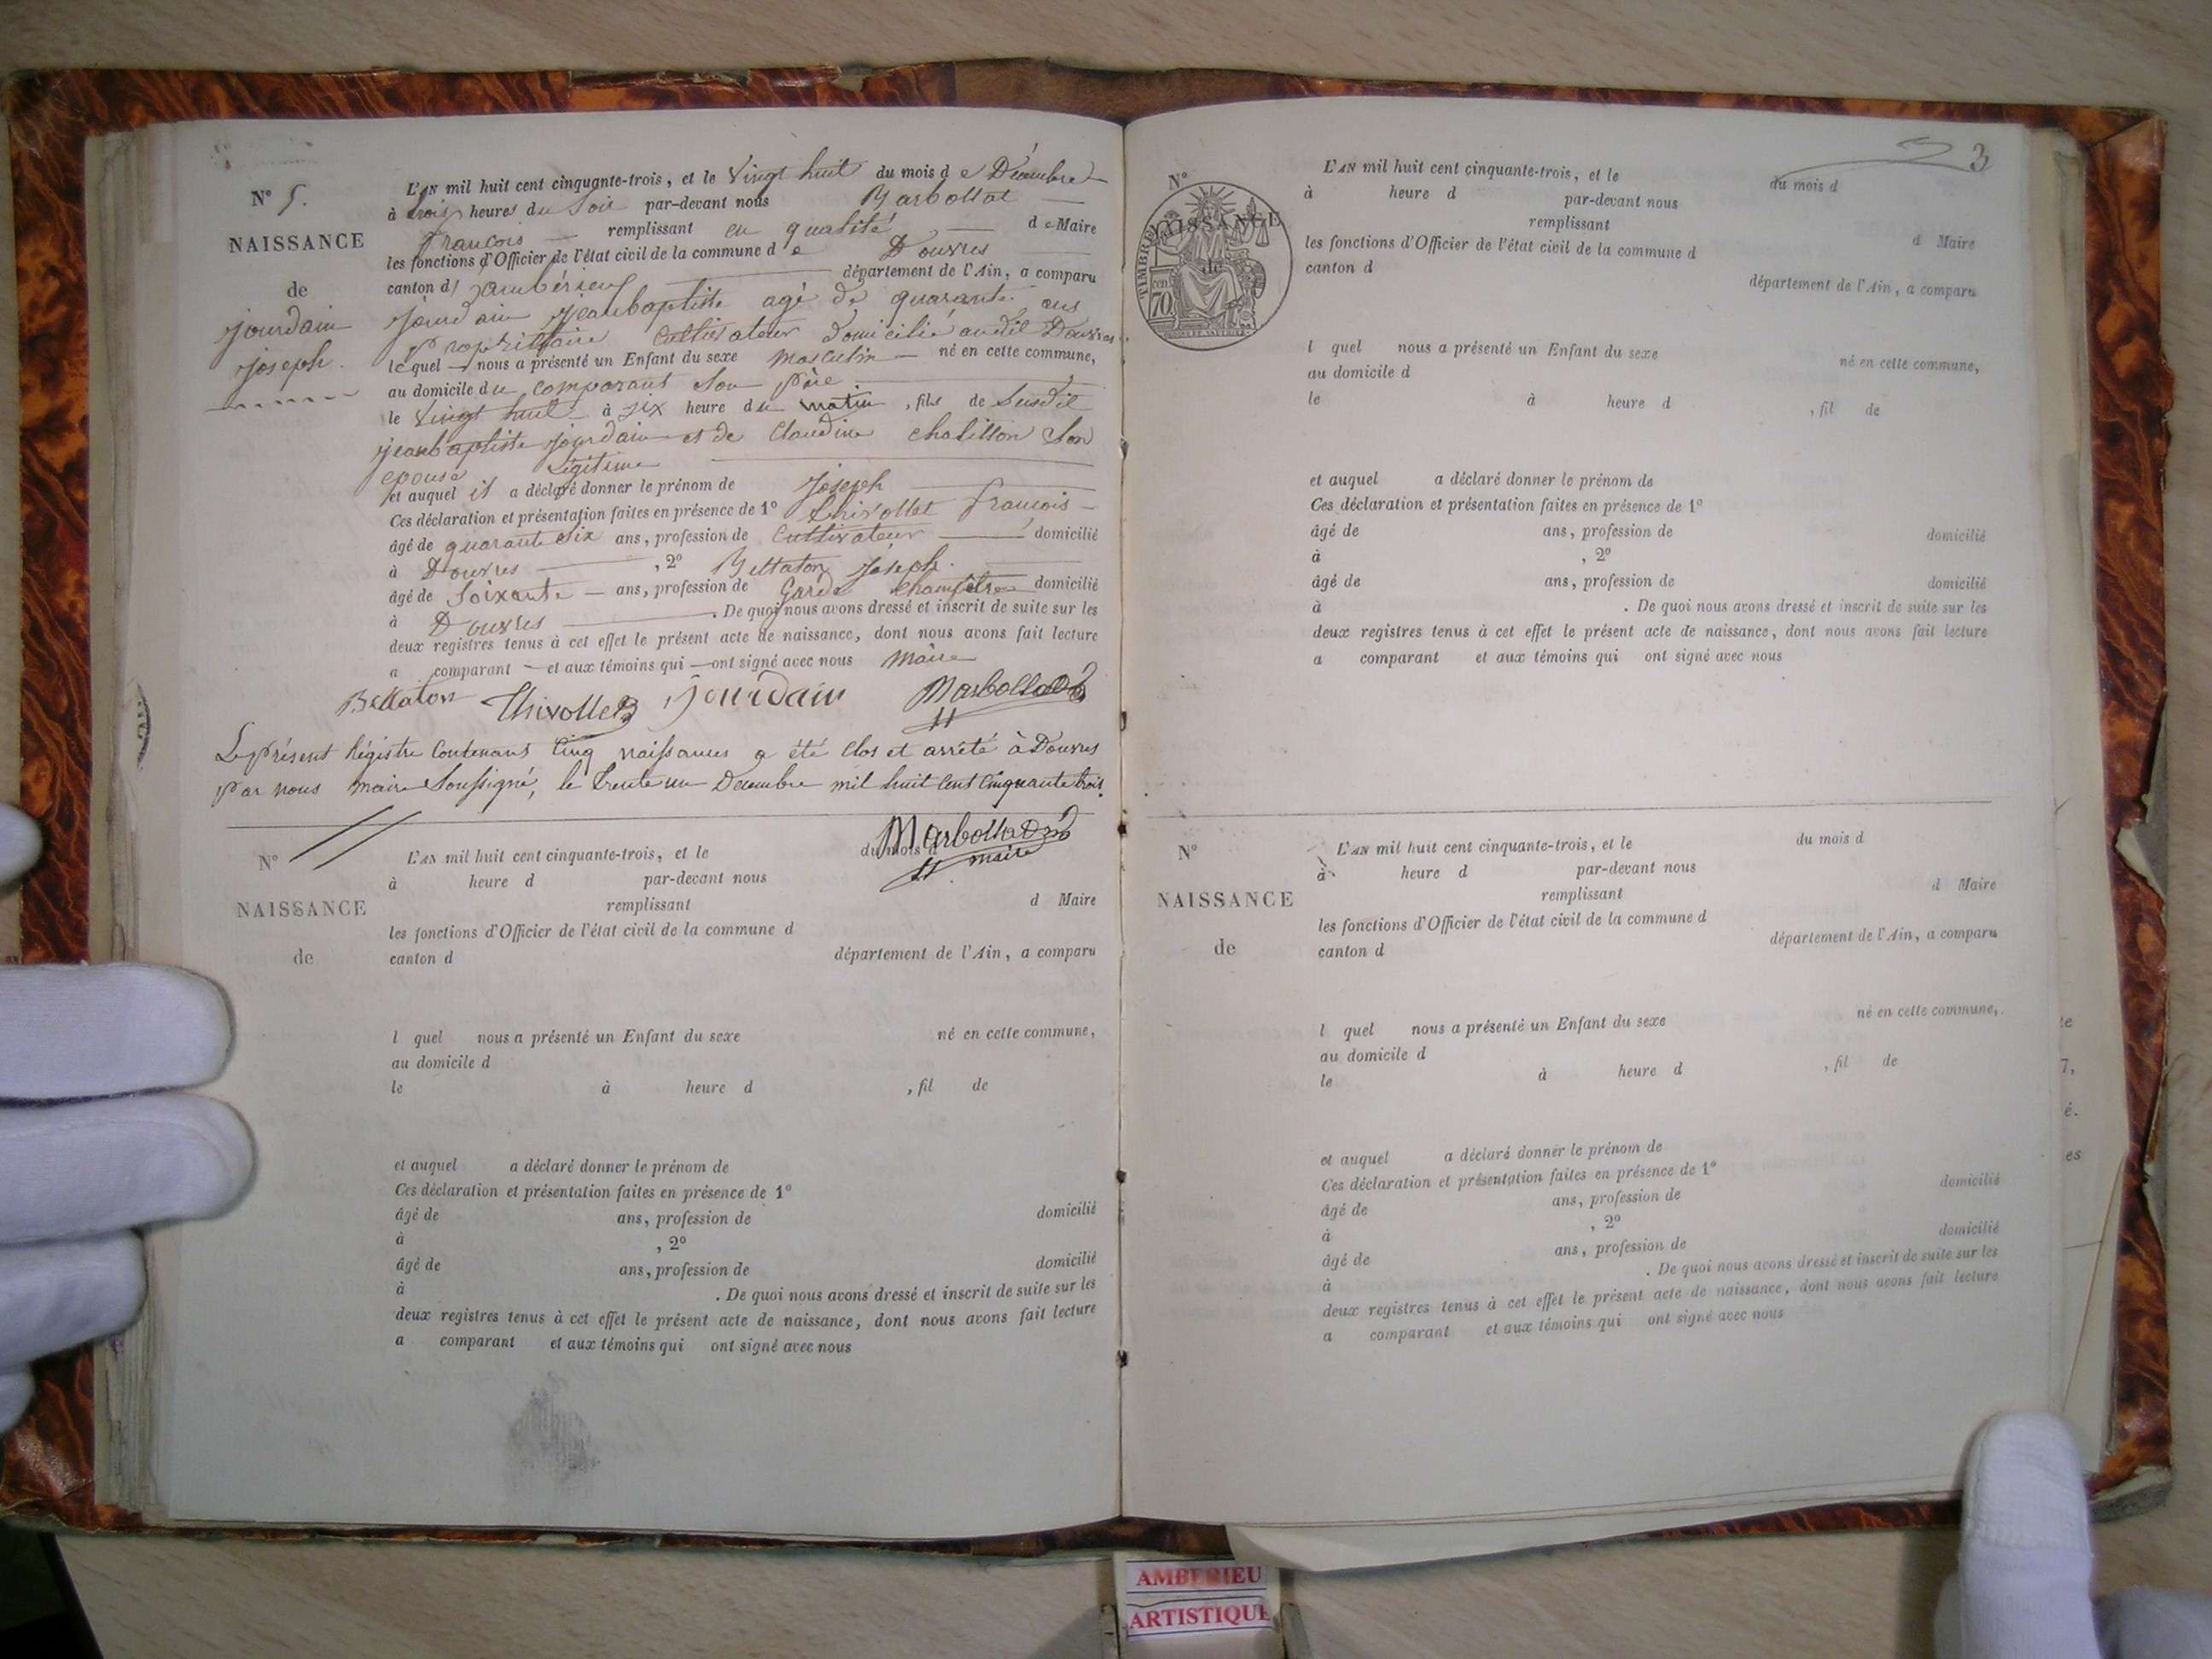 N° 5.
NAISSANCE
de
Jourdain
Joseph.
L'AN mil huit cent cinquante-trois, et le Vingt huit du mois de Décembre
à trois heures du Soir par-devant nous Marbollat
François remplissant en qualité de Maire
les fonctions d'Officier de l'état civil de la commune de Douvres
canton d'ambérieux département de l'Ain, a comparu
Jourdain Jeanbaptiste agé de quarante ans
Propriétaire Cultivateur domicilié audit Douvres
lequel nous a présenté un Enfant du sexe masculin né en cette commune,
au domicile du comparant Son père
le Vingt huit à six heure du matin, fils de Susdit
Jeanbaptiste Jourdain et de Claudine chatillon Son
epouse Légitime
et auquel il a déclaré donner le prénom de Joseph
Ces déclaration et présentation faites en présence de 1° Thivollet françois
âgé de quarante Six ans, profession de Cultivateur domicilié
à Douvres, 2° Bellaton Joseph.
âgé de Soixante ans, profession de Garde Champêtre domicilié
à Douvres. De quoi nous avons dressé et inscrit de suite sur les
deux registres tenus à cet effet le présent acte de naissance, dont nous avons fait lecture
a comparant et aux témoins qui ont signé avec nous Maire
Bellaton Thivollet Jourdain Marbollat
Le présent Régistre Contenant Cinq naissances a été clos et arrêté à Douvres
Par nous maire Soussigné, le trente un Decembre mil huit Cent Cinquante trois.
Marbollat
maire
N°
NAISSANCE
de
L'AN mil huit cent cinquante-trois, et le du mois d
à heure d par-devant nous
remplissant d Maire
les fonctions d'Officier de l'état civil de la commune d
canton d département de l'Ain, a comparu
l quel nous a présenté un Enfant du sexe né en cette commune,
au domicile d
le à heure d , fil de
et auquel a déclaré donner le prénom de
Ces déclaration et présentation faites en présence de 1°
âgé de ans, profession de domicilié
à , 2°
âgé de ans, profession de domicilié
à . De quoi nous avons dressé et inscrit de suite sur les
deux registres tenus à cet effet le présent acte de naissance, dont nous avons fait lecture
a comparant et aux témoins qui ont signé avec nous
3
N°
NAISSANCE
de
TIMBRE
70
L'AN mil huit cent cinquante-trois, et le du mois d
à heure d par-devant nous
remplissant d Maire
les fonctions d'Officier de l'état civil de la commune d
canton d département de l'Ain, a comparu
l quel nous a présenté un Enfant du sexe né en cette commune,
au domicile d
le à heure d , fil de
et auquel a déclaré donner le prénom de
Ces déclaration et présentation faites en présence de 1°
âgé de ans, profession de domicilié
à , 2°
âgé de ans, profession de domicilié
à . De quoi nous avons dressé et inscrit de suite sur les
deux registres tenus à cet effet le présent acte de naissance, dont nous avons fait lecture
a comparant et aux témoins qui ont signé avec nous
N°
NAISSANCE
de
L'AN mil huit cent cinquante-trois, et le du mois d
à heure d par-devant nous
remplissant d Maire
les fonctions d'Officier de l'état civil de la commune d
canton d département de l'Ain, a comparu
l quel nous a présenté un Enfant du sexe né en cette commune,
au domicile d
le à heure d , fil de
et auquel a déclaré donner le prénom de
Ces déclaration et présentation faites en présence de 1°
âgé de ans, profession de domicilié
à , 2°
âgé de ans, profession de domicilié
à . De quoi nous avons dressé et inscrit de suite sur les
deux registres tenus à cet effet le présent acte de naissance, dont nous avons fait lecture
a comparant et aux témoins qui ont signé avec nous
AMBERIEU
ARTISTIQUE